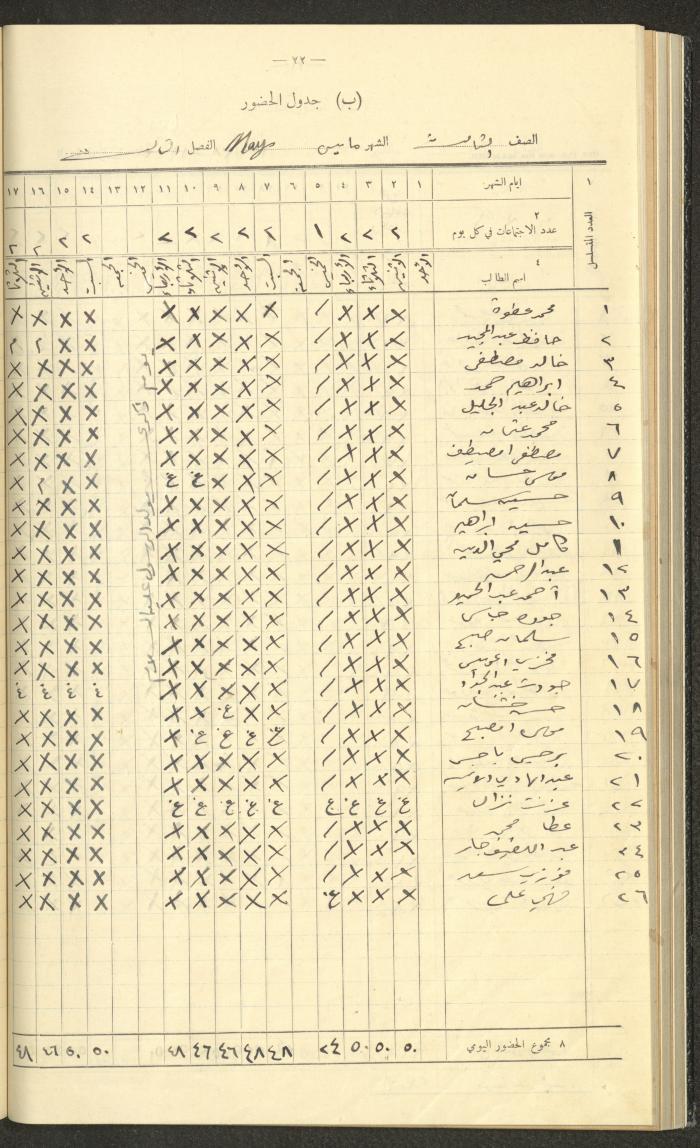 — ٢٢ —
(ب) جدول الحضور
الصف الثالث الشهر مايس May الفصل الثالث
١ ايام الشهر ١ ٢ ٣ ٤ ٥ ٦ ٧ ٨ ٩ ١٠ ١١ ١٢ ١٣ ١٤ ١٥ ١٦ ١٧
العدد المتسلسل
٢
عدد الاجتماعات في كل يوم ٢ ٢ ٢ ١ ٢ ٢ ٢ ٢ ٢ ٢ ٢ ٢ ٢
٤
اسم الطالب الأحد الاثنين الثلاثاء الأربعاء الخميس الجمعة السبت الأحد الاثنين الثلاثاء الأربعاء الخميس الجمعة السبت الأحد الاثنين الثلاثاء
١ محمد عطوة X X X / X X X X X X X X X
٢ حافظ عبد المجيد X X X / X X X X X X X م م
٣ خالد مصطفى X X X / X X X X X X X X X
٤ ابراهيم حمد X X X / X X X X X X X X X
٥ خالد عبد الجليل X X X / X X X X X X X X X
٦ محمد عثمان X X X / X X X X X X X X X
٧ مصطفى امصيطف X X X / X X X X X X X X X
٨ موسى حسان X X X / X X X غ غ X X م X
٩ حسين سلمان X X X / X X X X X X X X X
١٠ حسين ابراهيم X X X / X X X X X X X X X
١١ كامل محي الدين X X X / / X X X X X X X X
١٢ عبد الرحمن X X X / X X X X X X X X X
١٣ أحمد عبد الحميد X X X / X X X X X X X X X
١٤ جوده عباس X X X / X X X X X X X X X
١٥ سلمان صبيح X X X / X X X X X X X X X
١٦ فخري X X X / X X X X X X X X X
١٧ جودت عبد الجواد X X X / X X X X X غ غ غ غ
١٨ حسن X X X / X X غ X X X X X X
١٩ موسى امصبح X X X / غ غ غ غ X X X X X
٢٠ برجس X X X / X X X X X X X X X
٢١ عبد الهادي X X X / X X X X X X X X X
٢٢ عزت نزال غ غ غ غ غ غ غ غ غ X X X X
٢٣ عطا محمد X X X / X X X X X X X X X
٢٤ عبد اللطيف X X X / X X X X X X X X X
٢٥ فوزي سعد X X X / X X X X X X X X X
٢٦ فهمي علي X X X غ X X X X X X X X X
يوم ذكرى مولد الرسول عليه السلام
٨ مجموع الحضور اليومي ٥٠ ٥٠ ٥٠ ٢٤ ٤٨ ٤٨ ٤٦ ٤٦ ٤٨ ٥٠ ٥٠ ٤٦ ٤٨